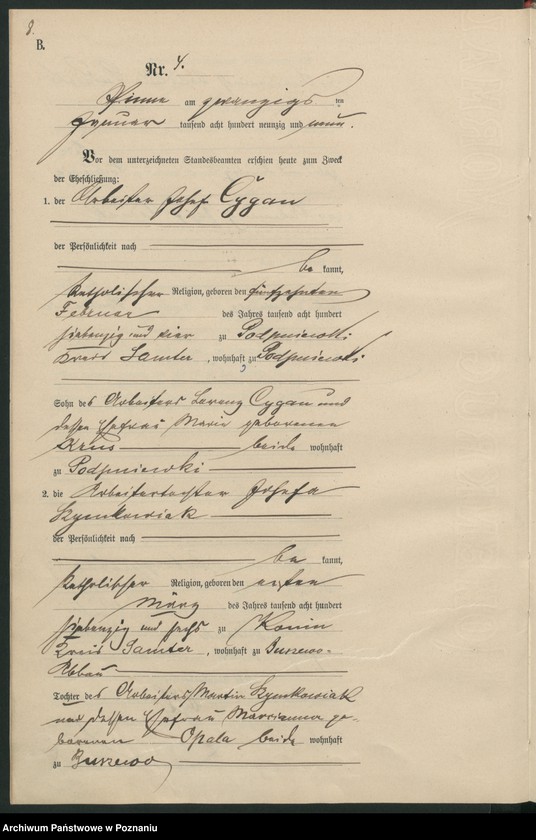 8.
B.
Nr. 4.
Pinne am zwanzigsten
Januar tausend acht hundert neunzig und neun.
Vor dem unterzeichneten Standesbeamten erschien heute zum Zweck
der Eheschließung:
1. der Arbeiter Josef Cygan
der Persönlichkeit nach
be kannt,
katholischer Religion, geboren den fünfzehnten
Februar des Jahres tausend acht hundert
siebenzig und vier zu Podpniewki
Kreis Samter, wohnhaft zu Podpniewki
Sohn des Arbeiters Lorenz Cygan und
dessen Ehefrau Marie geborenen
beide wohnhaft
zu Podpniewki
2. die Arbeitertochter Josefa
Szymkowiak
der Persönlichkeit nach
be kannt,
katholischer Religion, geboren den ersten
März des Jahres tausend acht hundert
siebenzig und sechs zu Konin
Kreis Samter, wohnhaft zu Buszewo-
Abbau
Tochter des Arbeiters Martin Szymkowiak
und dessen Ehefrau Marianna ge-
borenen Opala beide wohnhaft
zu Buszewo
Archiwum Państwowe w Poznaniu